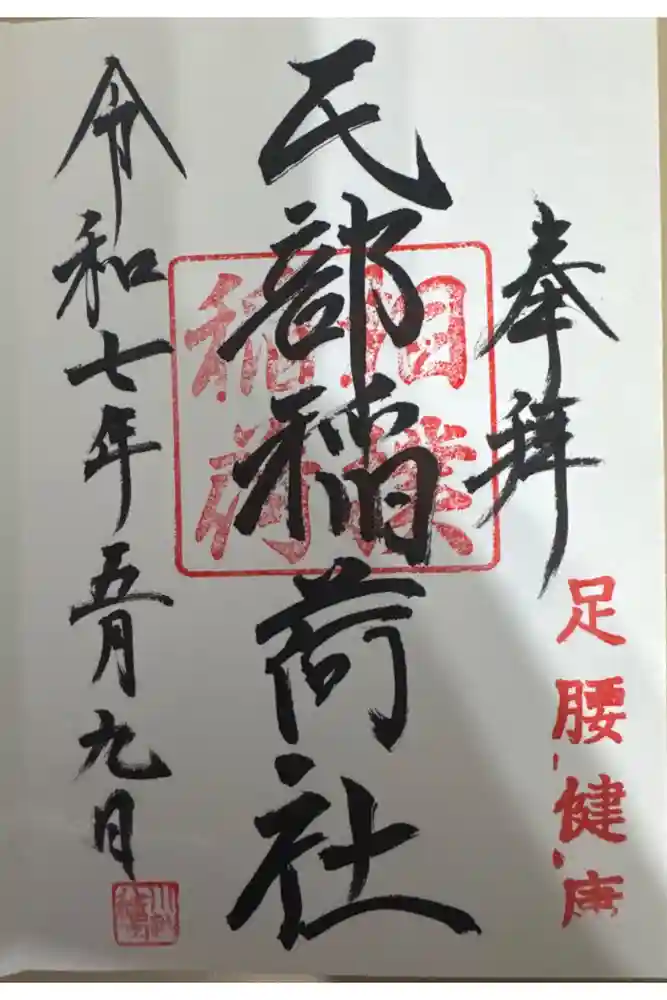 奉拝
足腰健康
民部稲荷社
相撲
稲荷
令和七年五月九日